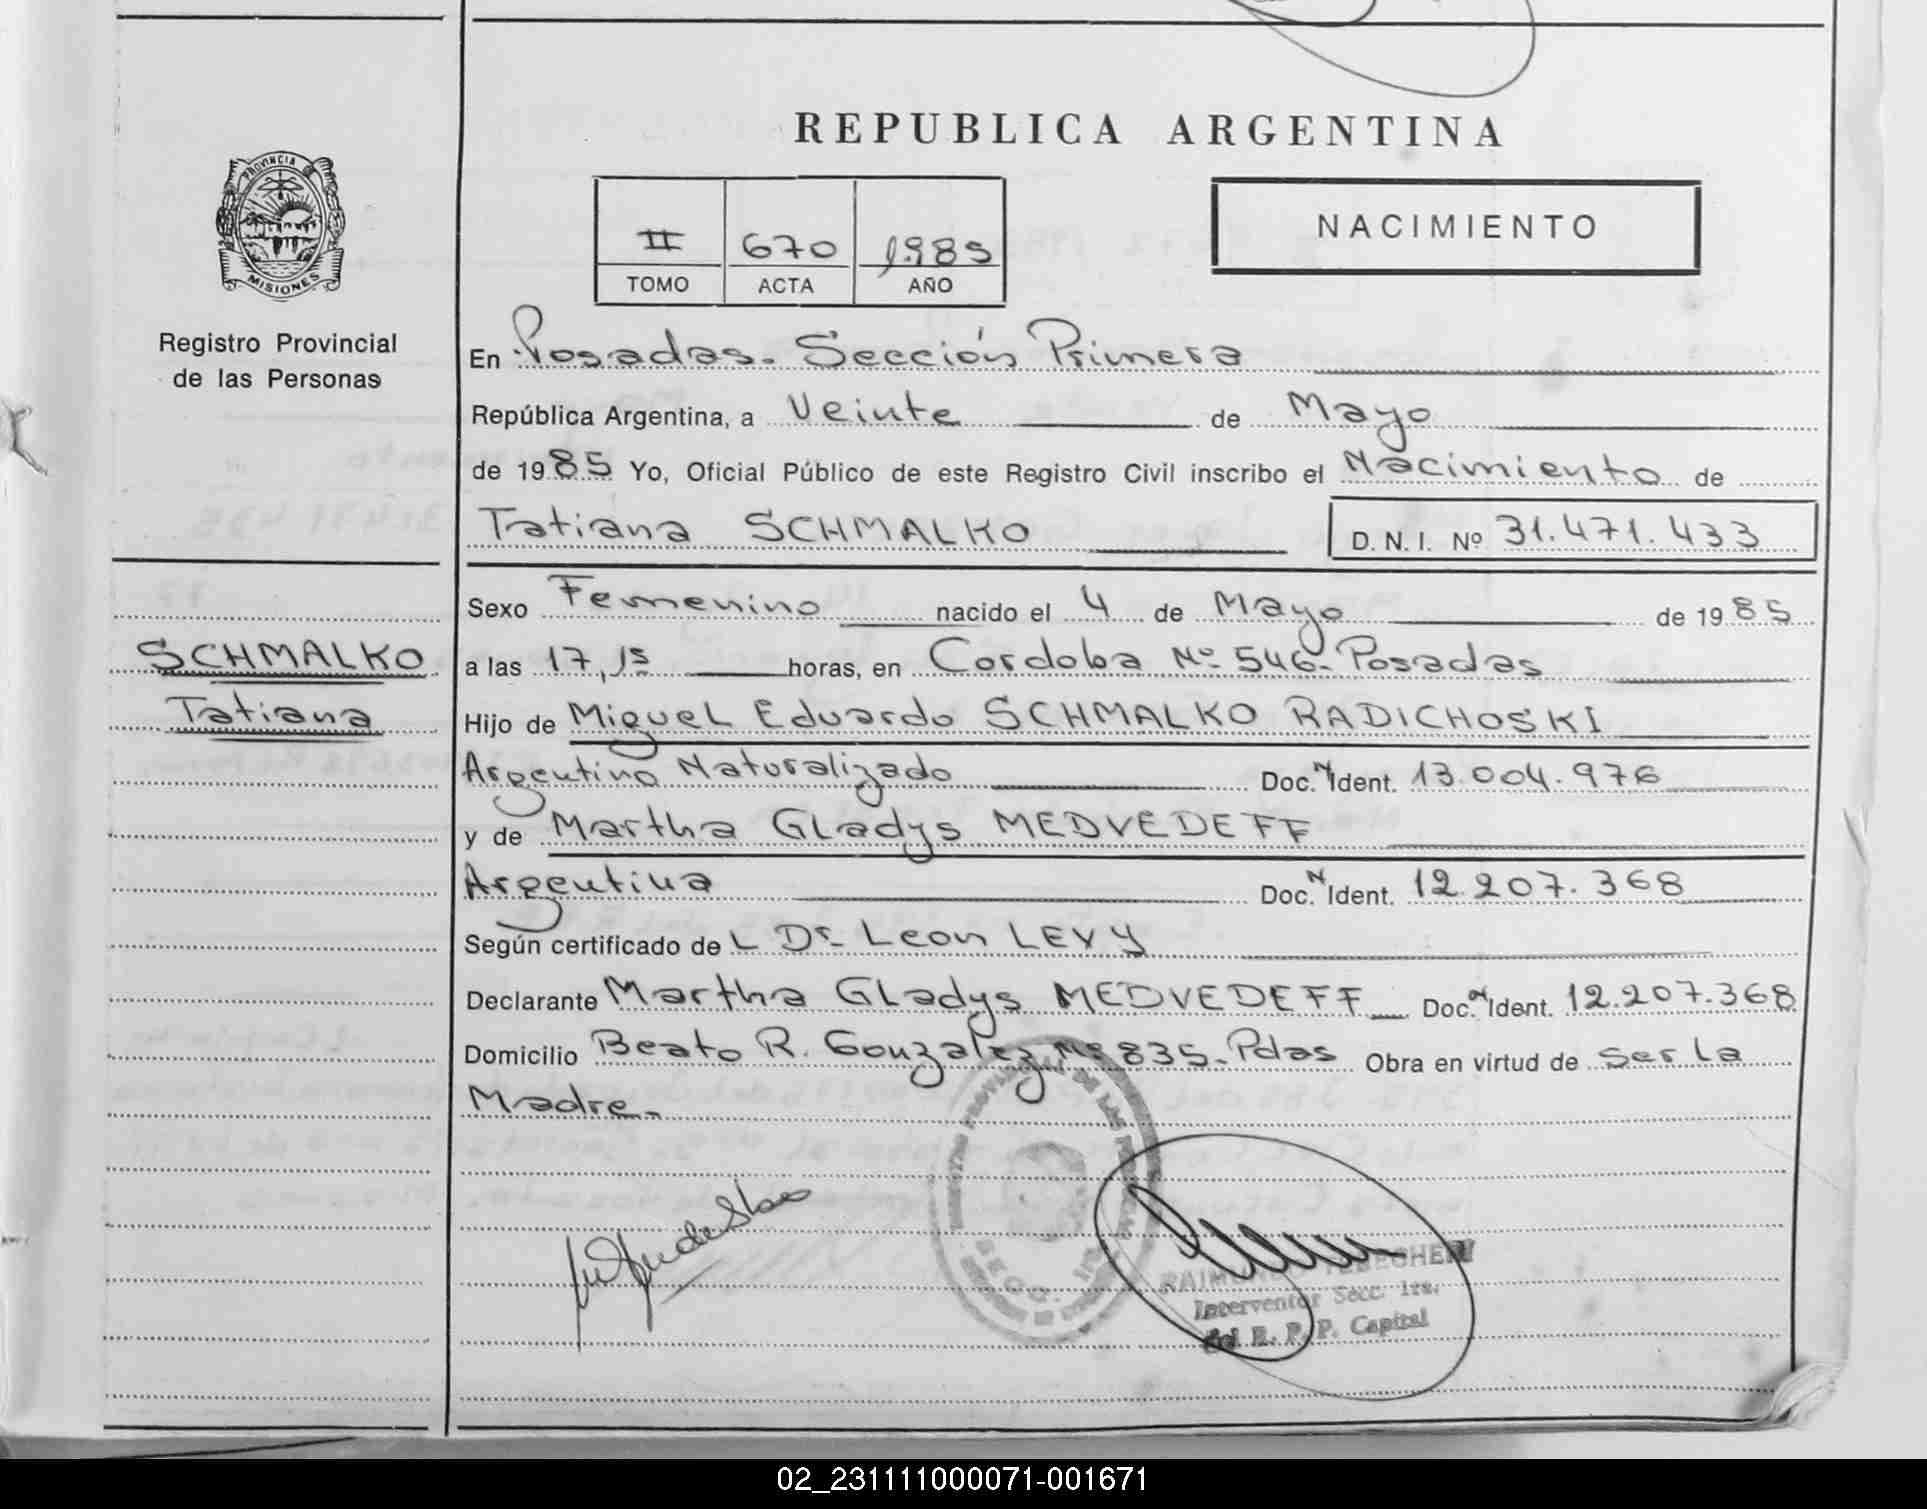 REPUBLICA ARGENTINA
PROVINCIA
MISIONES
Registro Provincial
de las Personas
II 670 1985
TOMO ACTA AÑO
NACIMIENTO
En Posadas. Sección Primera
República Argentina, a Veinte de Mayo
de 1985 Yo, Oficial Público de este Registro Civil inscribo el Nacimiento de
Tatiana SCHMALKO D. N. I. Nº 31.471.433
Sexo Femenino nacido el 4 de Mayo de 1985
SCHMALKO
Tatiana
a las 17,15 horas, en Cordoba Nº 546. Posadas
Hijo de Miguel Eduardo SCHMALKO RADICHOSKI
Argentino Naturalizado Doc. N Ident. 13.004.976
y de Martha Gladys MEDVEDEFF
Argentina Doc. N Ident. 12.207.368
Según certificado de L Dr Leon LEVY
Declarante Martha Gladys MEDVEDEFF Doc. N Ident. 12.207.368
Domicilio Beato R. Gonzalez Nº 835. Pdas Obra en virtud de ser la
Madre.
Interventor Secc. 1ra.
del R. P. P. Capital
02_231111000071-001671